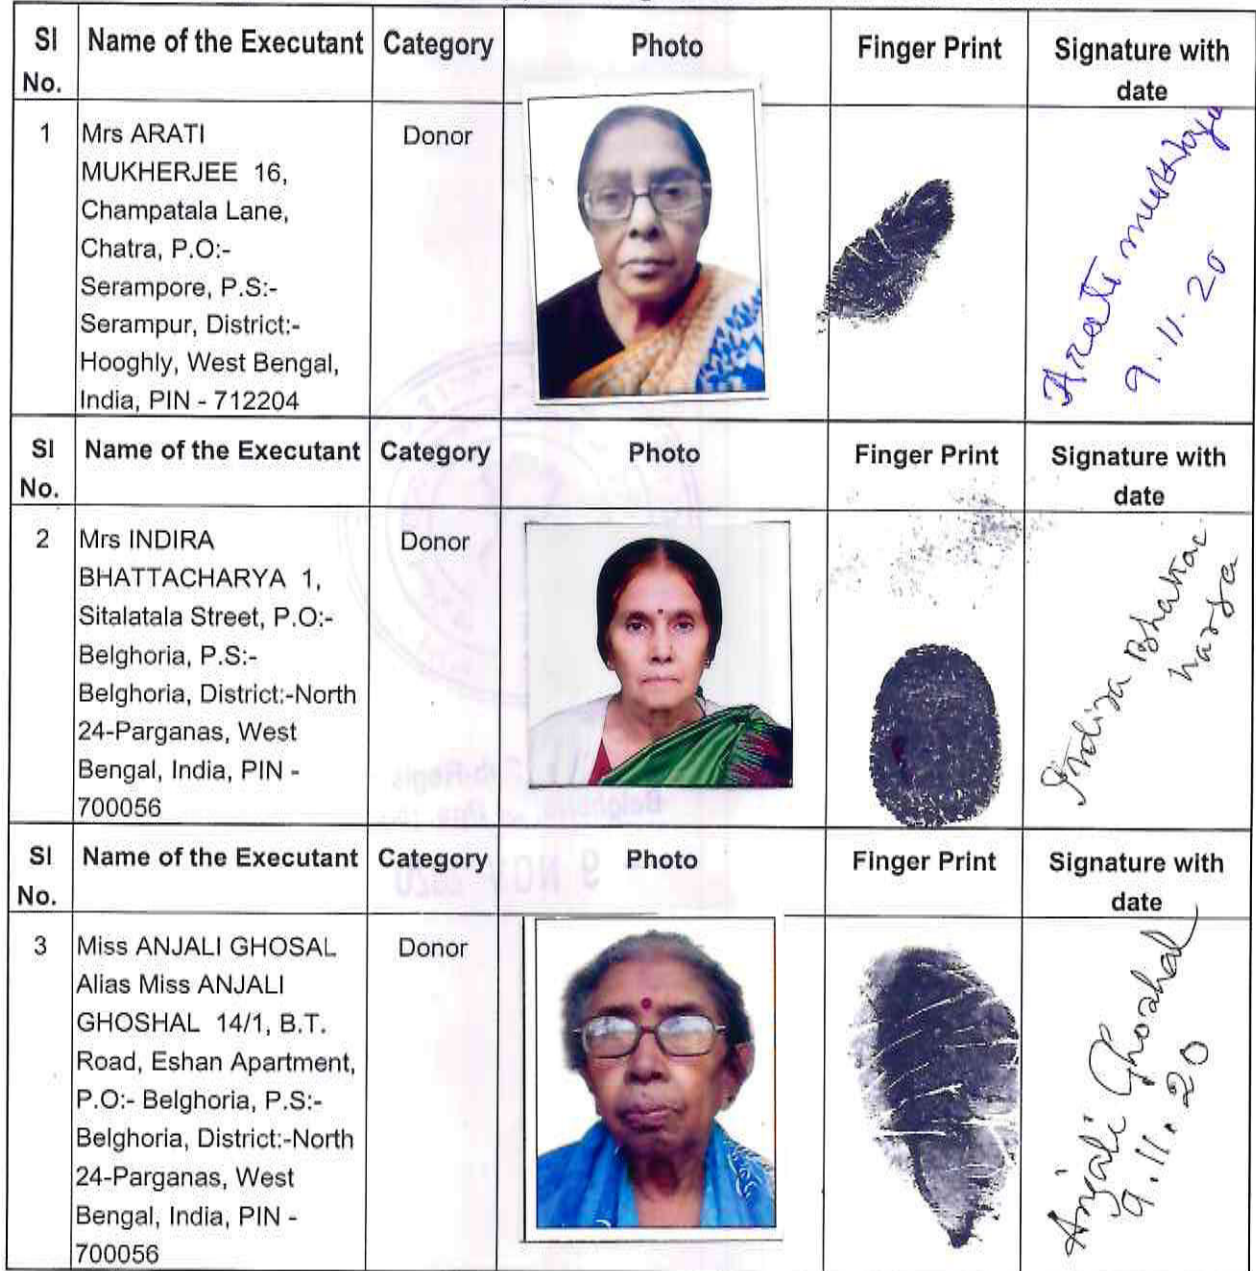 SI No. Name of the Executant Category Photo Finger Print Signature with date
1
Mrs ARATI
MUKHERJEE 16,
Champatala Lane,
Chatra, P.O:-
Serampore, P.S:-
Serampur, District:-
Hooghly, West Bengal,
India, PIN - 712204
Donor
Arati
9.11.20
SI No. Name of the Executant Category Photo Finger Print Signature with date
2
Mrs INDIRA
BHATTACHARYA 1,
Sitalatala Street, P.O:-
Belghoria, P.S:-
Belghoria, District:-North
24-Parganas, West
Bengal, India, PIN -
700056
Donor
Indira Bhattac
harya
9 NOV 2020
SI No. Name of the Executant Category Photo Finger Print Signature with date
3
Miss ANJALI GHOSAL
Alias Miss ANJALI
GHOSHAL 14/1, B.T.
Road, Eshan Apartment,
P.O:- Belghoria, P.S:-
Belghoria, District:-North
24-Parganas, West
Bengal, India, PIN -
700056
Donor
Anjali Ghoshal
9.11.20